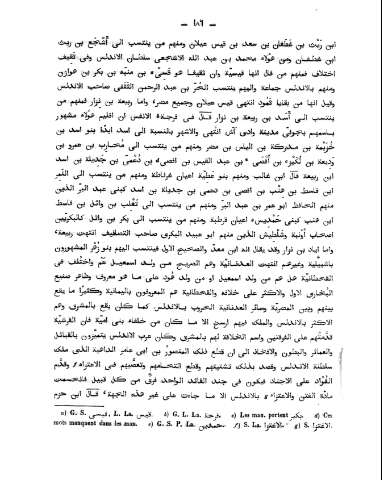 ١٨٦
ابن ريث بن غطفان بن سعد بن قيس عيلان ومنهم من ينتسب الى أشجع بن ريث
ابن غطفان ومن هؤلاء محمد بن عبد الله الاشجعى سلطان الاندلس وفى ثقيف
اختلاف فمنهم من قال انها قيسية وان ثقيفا هو قسى بن منبه بن بكر بن هوازن
ومنهم بالاندلس جماعة واليهم ينتسب الحر بن عبد الرحمن الثقفى صاحب الاندلس
وقيل انها من بقايا ثمود انتهى قيس عيلان وجميع مضر واما ربيعة بن نزار فمنهم من
ينتسب الى أسد بن ربيعة بن نزار قال فى فرحة الانفس ان اقليم هؤلاء مشهور
باسمهم بجوفى مدينة وادى آش انتهى والاشهر بالنسبة الى اسد ابدا بنو اسد بن
خزيمة بن مدركة بن الياس بن مضر ومنهم من ينتسب الى محارب بن عمرو بن
وديعة بن لكيز بن أفصى بن عبد القيس بن افصى بن دعمى بن جديلة بن اسد
ابن ربيعة قال ابن غالب ومنهم بنو عطية اعيان غرناطة ومنهم من ينتسب الى النمر
ابن قاسط بن هنب بن افصى بن دعمى بن جديلة بن اسد كبنى عبد البر الذين
منهم الحافظ ابو عمر بن عبد البر ومنهم من ينتسب الى تغلب بن وائل بن قاسط
ابن هنب كبنى حمديس اعيان قرطبة ومنهم من ينتسب الى بكر بن وائل كالبكريين
اصحاب أونبة وشلطيش الذين منهم ابو عبيد البكرى صاحب التصانيف انتهت ربيعة
واما اياد بن نزار وقد يقال انه ابن معد والصحيح الاول فينتسب اليهم بنو زهر المشهورون
باشبيلية وغيرهم انتهت العدنانية وهم الصريح من ولد اسمعيل عم واختلف فى
القحطانية هل هم من ولد اسمعيل او من ولد هود على ما هو معروف وظاهر صنيع
البخارى الاول والاكثر على خلافه والقحطانية هم المعروفون باليمانية وكثيرا ما يقع
بينهم وبين المضرية وسائر العدنانية الحروب بالاندلس كما كان يقع بالمشرق وهم
الاكثر بالاندلس والملك فيهم ارسخ الا ما كان من خلفاء بنى امية فان القرشية
قدمتهم على الفرقتين واسم الخلافة لهم بالمشرق وكان عرب الاندلس يتميزون بالقبائل
والعمائر والبطون والافخاذ الى ان قطع ذلك المنصور بن ابى عامر الداهية الذى ملك
سلطنة الاندلس وقصد بذلك تشتيتهم وقطع التحامهم وتعصبهم فى الاعتزاء وقدم
القواد على الاجناد فيكون فى جند القائد الواحد فرق من كل قبيل فانحسمت
مادة الفتن والاعتزاء بالاندلس الا ما جاءت على غير هذه الجهة قال ابن حزم
a) G. S. قيسى, L. La. قيس. b) G. L. La. فرجة. c) Les man. portent بكير. d) Ces
mots manquent dans les man. e) G. S. P. La. حمدين. f) S. La. الاعتزا. g) S. الاعتزا.